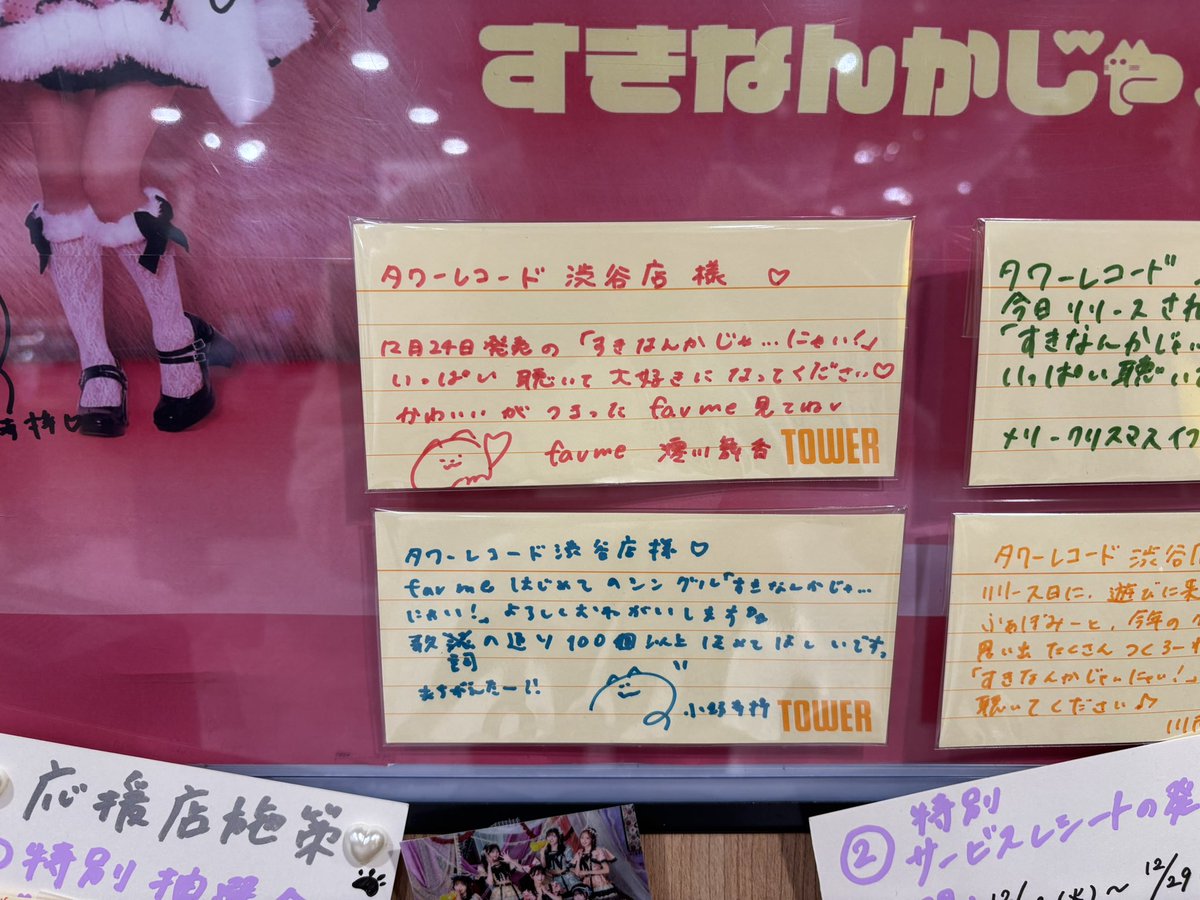 すきなんかじゃ
タワーレコード 渋谷店 様 ♡
12月24日発売の「すきなんかじゃ…にゃい!」
いっぱい 聴いて 大好きに なってください♡
かわいいが つまった fav me 見てね
fav me
TOWER
タワーレコード
今日リリースされ
「すきなんかじゃ
いっぱい聴い
メリークリスマスイブ
タワーレコード渋谷店様♡
fav me はじめてのシングル「すきなんかじゃ…
にゃい!」よろしくおねがいします
歌詞の通り100個以上ほめてほしいです。
まちがえたー!!
TOWER
タワーレコード 渋谷店
リリース日に、遊びに来
ふぁぼみーと、今年の
思い出たくさんつくろー
「すきなんかじゃにゃい!」
聴いてください♪
応援店施策
特別 抽選会
② 特別
サービスレシートの発
12/29